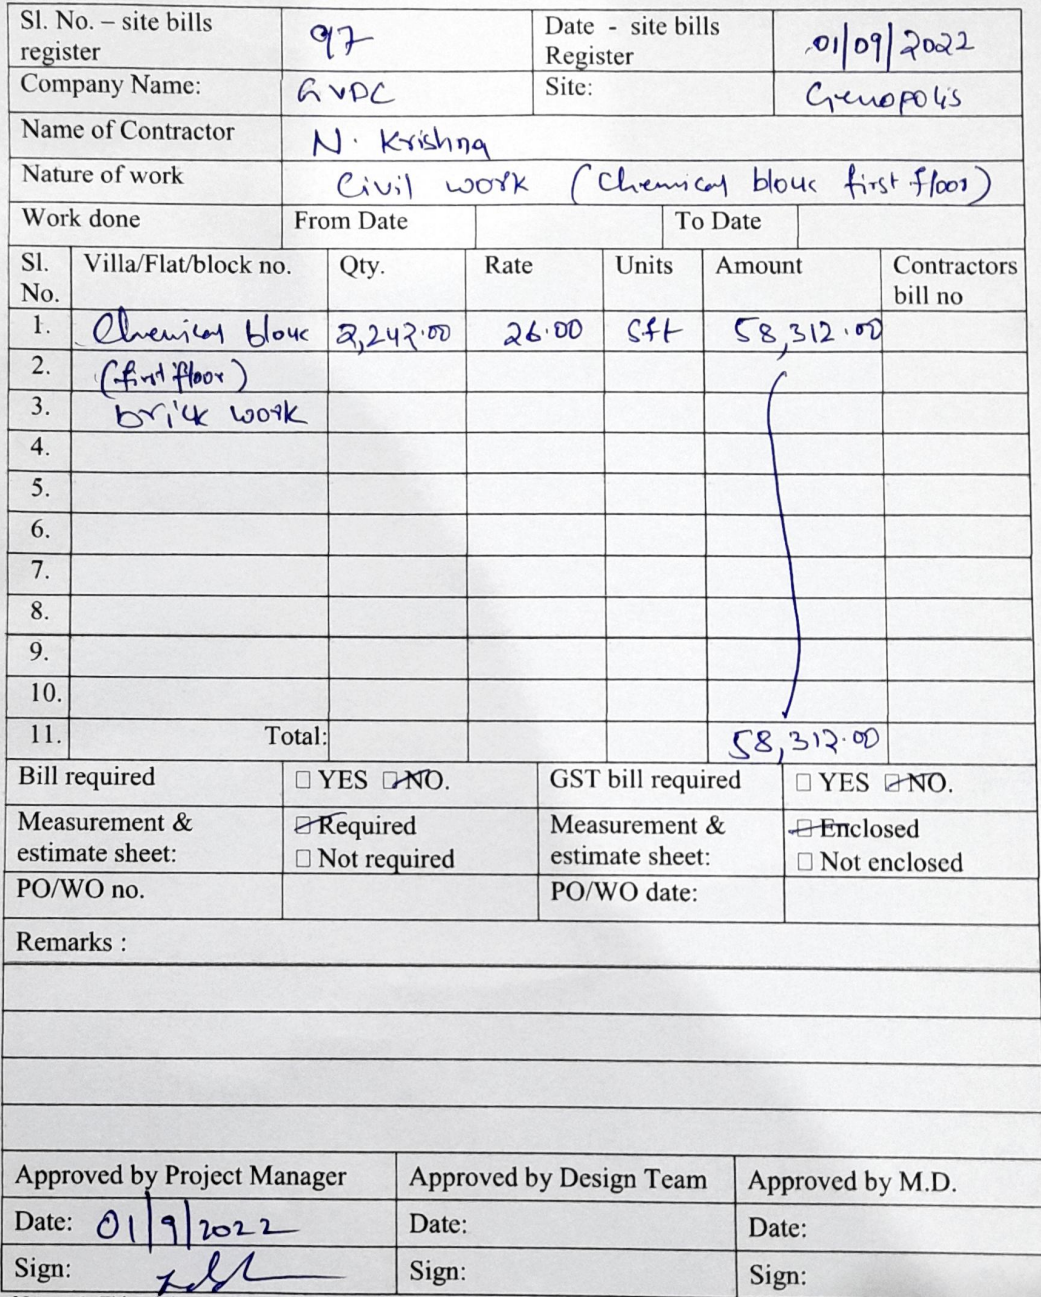 Sl. No. – site bills register 97 Date - site bills Register 01/09/2022
Company Name: GVDC Site: Genopolis
Name of Contractor N. Krishna
Nature of work Civil work (Chemical block first floor)
Work done From Date To Date
Sl. No. Villa/Flat/block no. Qty. Rate Units Amount Contractors bill no
1. Chemical block 2,242.00 26.00 Sft 58,312.00
2. (first floor)
3. brick work
4.
5.
6.
7.
8.
9.
10.
11. Total: 58,312.00
Bill required ☐ YES ☑ NO. GST bill required ☐ YES ☑ NO.
Measurement & estimate sheet: ☑ Required ☐ Not required Measurement & estimate sheet: ☑ Enclosed ☐ Not enclosed
PO/WO no. PO/WO date:
Remarks :
Approved by Project Manager Approved by Design Team Approved by M.D.
Date: 01/9/2022 Date: Date:
Sign: Sign: Sign: